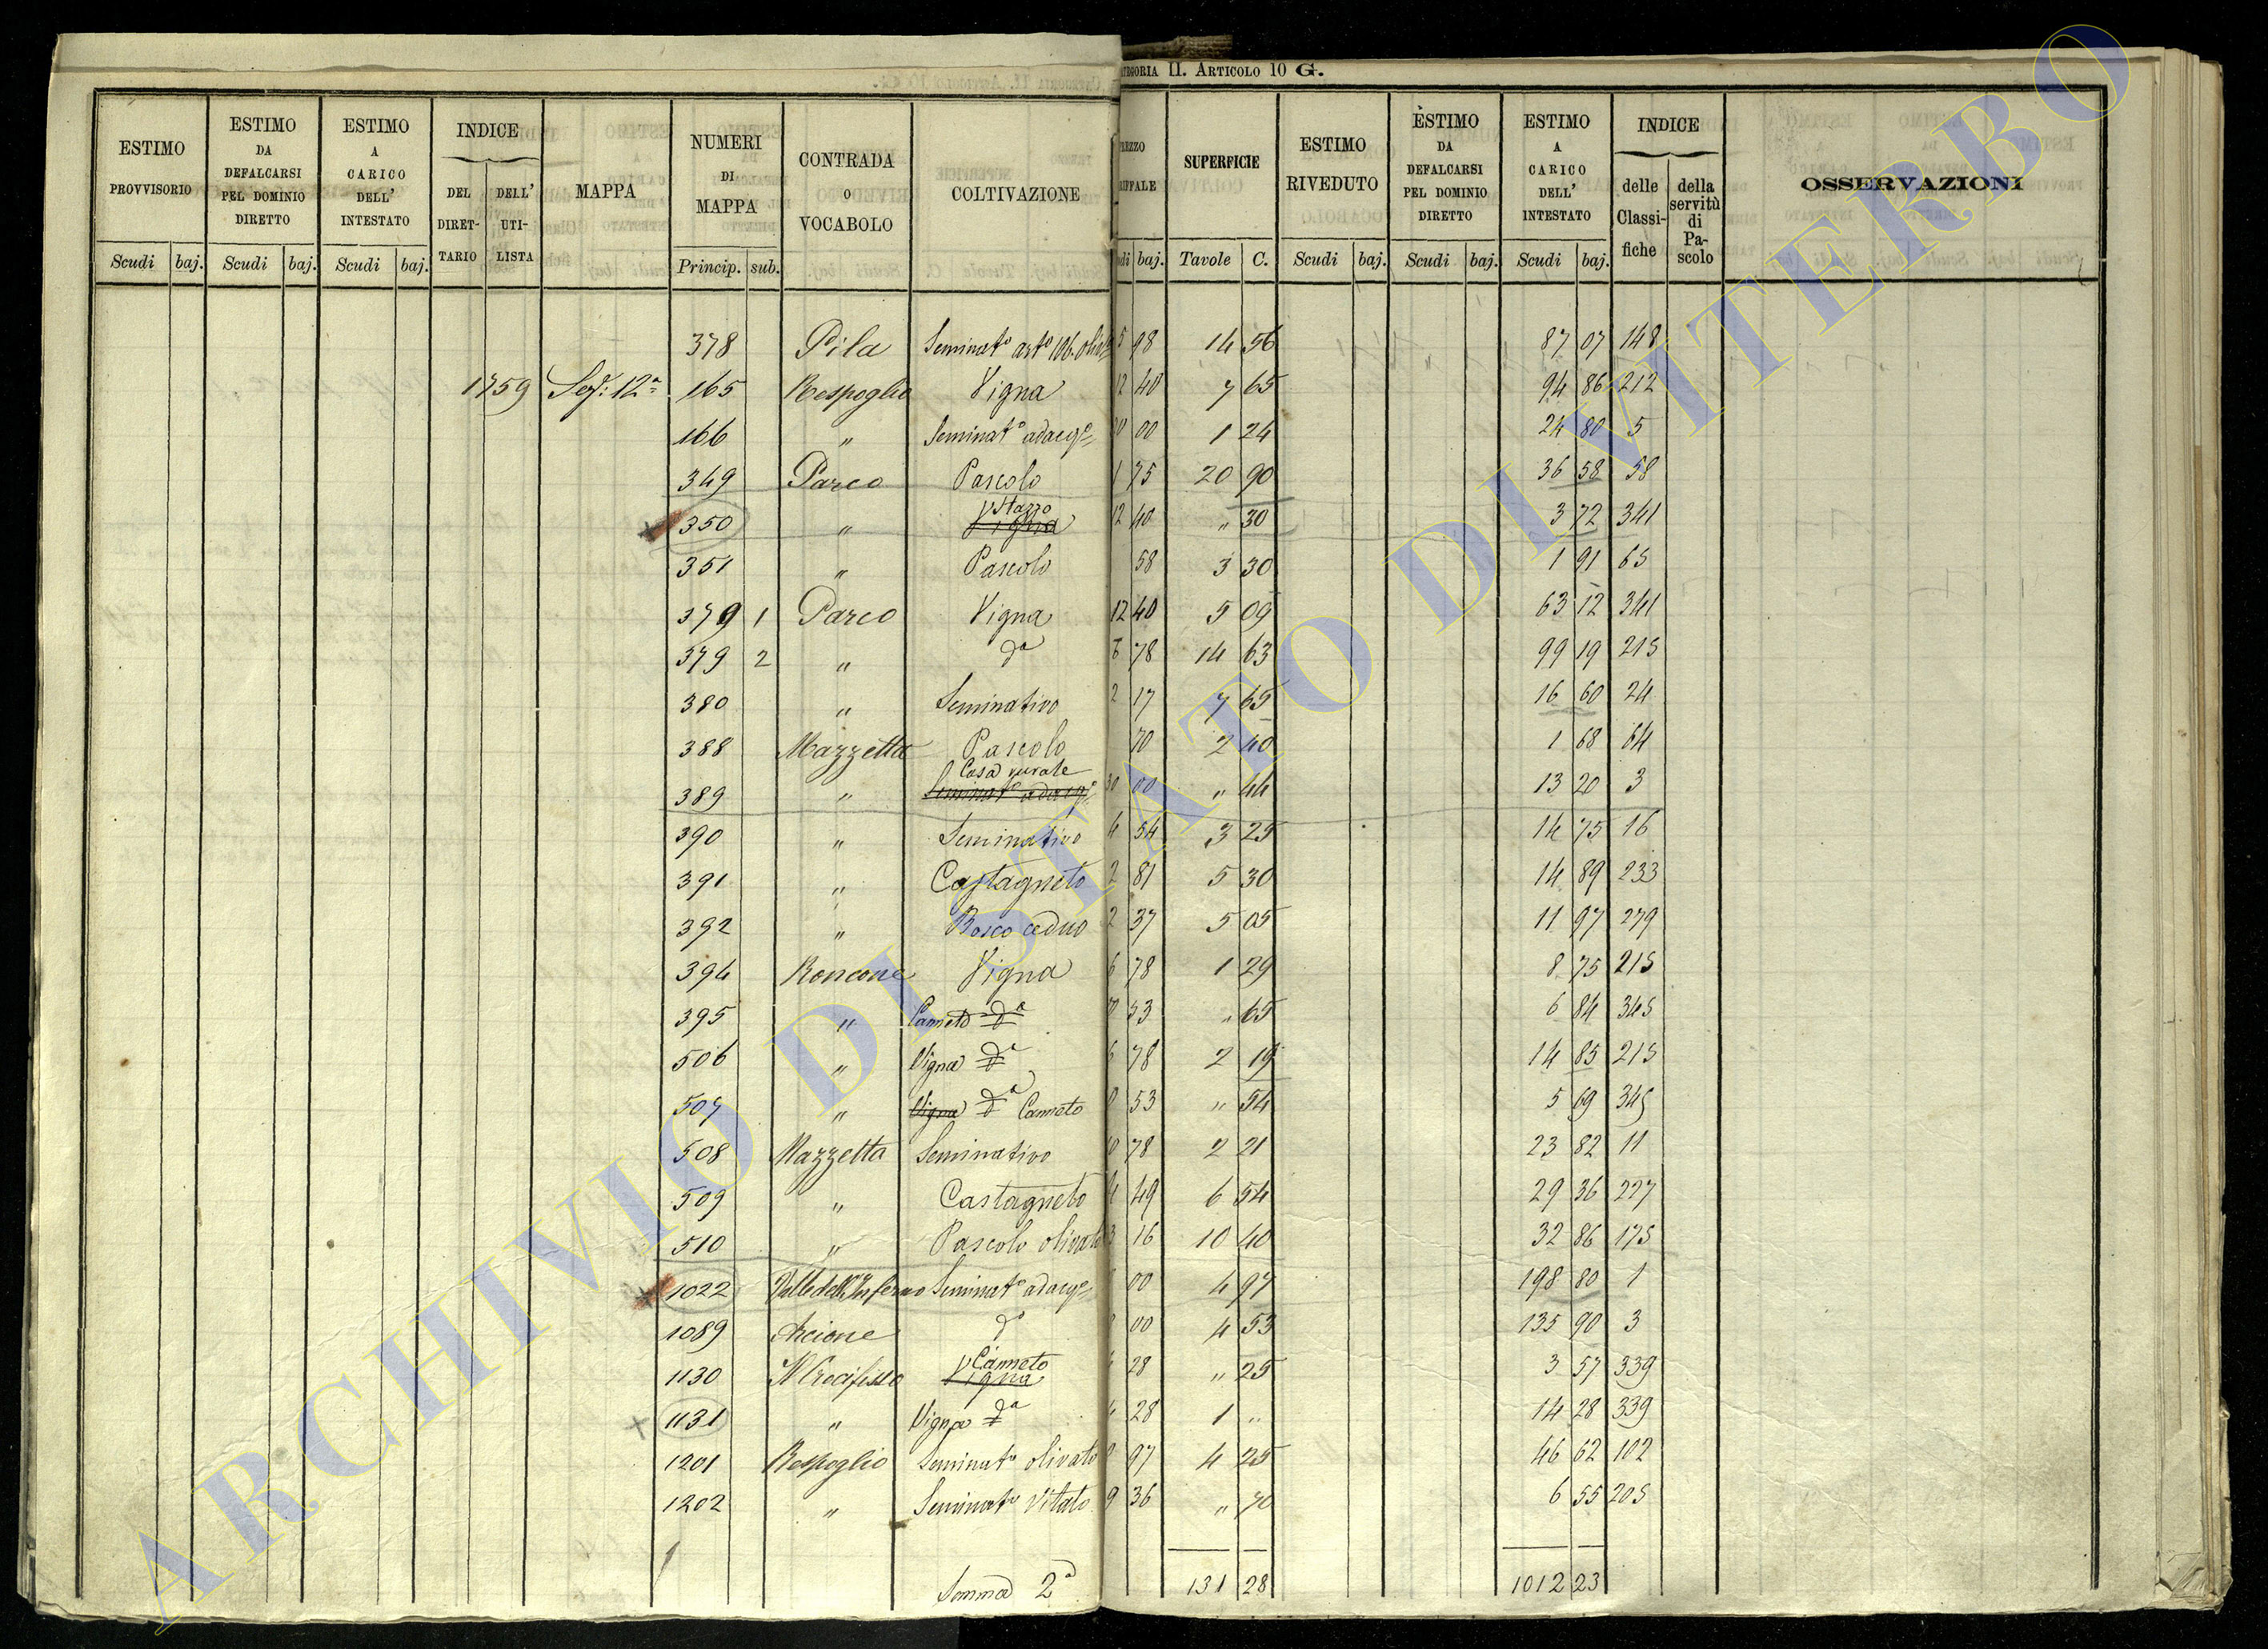 CATEGORIA II. ARTICOLO 10 G.
ESTIMO PROVVISORIO Scudi baj.
ESTIMO DA DEFALCARSI PEL DOMINIO DIRETTO Scudi baj.
ESTIMO A CARICO DELL' INTESTATO Scudi baj.
INDICE DEL DIRETTARIO DELL' UTILISTA
MAPPA
NUMERI DI MAPPA Princip. sub.
CONTRADA O VOCABOLO
COLTIVAZIONE
SUPERFICIE Tavole C.
ESTIMO RIVEDUTO Scudi baj.
ESTIMO DA DEFALCARSI PEL DOMINIO DIRETTO Scudi baj.
ESTIMO A CARICO DELL' INTESTATO Scudi baj.
INDICE delle Classifiche della servitù di Pascolo
OSSERVAZIONI
378 Pila Seminat° 98 14 56 87 07 148
1759 Sez: 12ª 165 Respoglio Vigna 12 40 7 65 94 86 212
166 " Seminat° adacq° 00 1 24 24 80 5
349 Parco Pascolo 1 75 20 90 36 58 58
350 " Vigna Stazzo 12 40 " 30 3 72 341
351 " Pascolo 58 3 30 1 91 65
379 1 Parco Vigna 12 40 5 09 63 12 341
379 2 " dª 6 78 14 63 99 19 215
380 " Seminativo 2 17 7 65 16 60 24
388 Mazzetta Pascolo 70 2 40 1 68 64
389 " Casa rurale Seminat° adacq° 30 00 " 44 13 20 3
390 " Seminativo 4 54 3 25 14 75 16
391 " Castagneto 2 81 5 30 14 89 233
392 " Bosco ceduo 2 37 5 05 11 97 279
394 Roncone Vigna 6 78 1 29 8 75 215
395 " Canneto dª 53 " 65 6 84 345
506 " Vigna dª 6 78 2 19 14 85 215
507 " Vigna dª Canneto 53 " 54 5 69 345
508 Mazzetta Seminativo 10 78 2 21 23 82 11
509 " Castagneto 4 49 6 54 29 36 227
510 " Pascolo olivato 3 16 10 40 32 86 175
1022 Valle dell'Inferno Seminat° adacq° 00 4 97 198 80 1
1089 Arcione d° 00 4 53 135 90 3
1130 Il Crocifisso Vigna Canneto 28 " 25 3 57 339
1131 " Vigna dª 28 1 " 14 28 339
1201 Respoglio Seminat° olivato 97 4 25 46 62 102
1202 " Seminat° Vitato 9 36 " 70 6 55 205
Somma 2ª 131 28 1012 23
ARCHIVIO DI STATO DI VITERBO